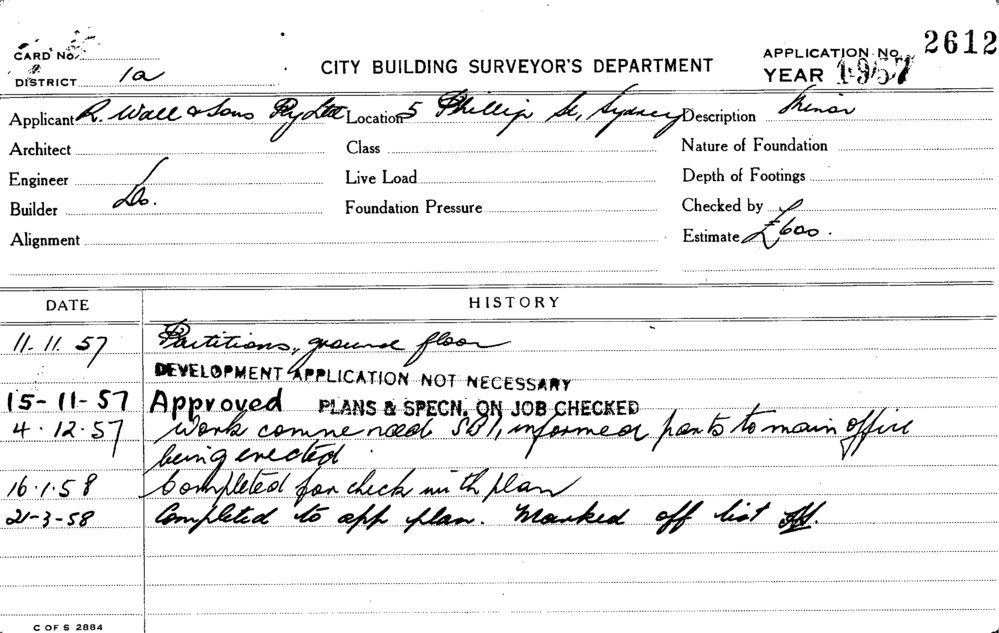 CARD No.
DISTRICT 1a
CITY BUILDING SURVEYOR'S DEPARTMENT
APPLICATION No. 2612
YEAR 1957
Applicant R. Wall & Sons Pty Ltd Location 5 Phillip St, Sydney Description Minor
Architect Class Nature of Foundation
Engineer Live Load Depth of Footings
Builder Do. Foundation Pressure Checked by
Alignment Estimate £600.
DATE HISTORY
11.11.57 Partitions, ground floor
DEVELOPMENT APPLICATION NOT NECESSARY
15-11-57 Approved PLANS & SPECN. ON JOB CHECKED
4.12.57 Work commenced SBI, informed parts to main office
being erected
16.1.58 Completed for check with plan
21-3-58 Completed to app plan. Marked off list
C OF S 2884